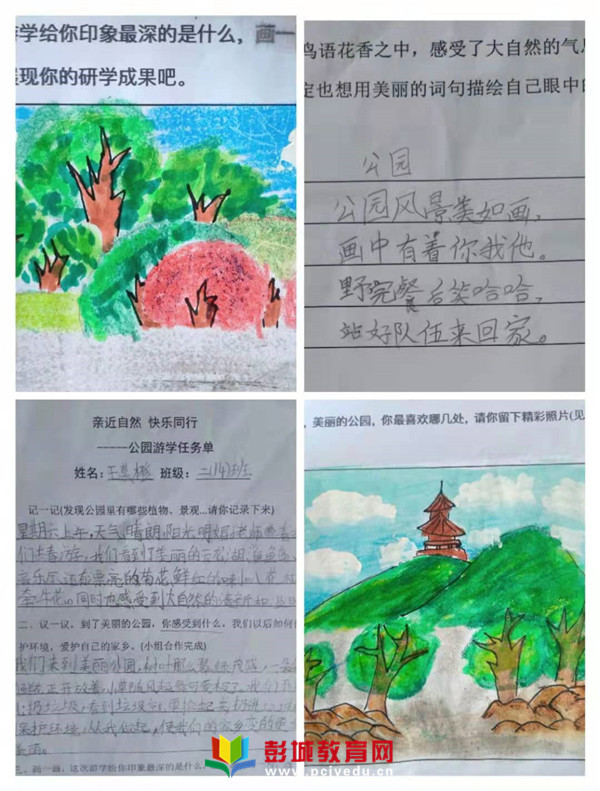 游学给你印象最深的是什么，画一
现你的研学成果吧。
鸟语花香之中，感受了大自然的气
定也想用美丽的词句描绘自己眼中的
公园
公园风景美如画，
画中有着你我他。
野完餐后笑哈哈，
站好队伍来回家。
亲近自然 快乐同行
-----公园游学任务单
姓名: 班级: 二(14)班
记一记(发现公园里有哪些植物、景观...请你记录下来)
星期六上午，天气晴朗，阳光明媚，老师带着
们去春游，我们看到了美丽的云龙湖
音乐厅，还有漂亮的菊花，鲜红的
牵牛花。同时也感受到大自然的
二、议一议，到了美丽的公园，你感受到什么，我们以后如何
护环境，爱护自己的家乡。(小组合作完成)
我们来到美丽公园，树叶那么
正开放着，小草随风
扔垃圾，看到垃圾
保护环境，从我做起，使我们的家乡变的更
美丽。
三、画一画，这次游学给你印象最深的是什么
，美丽的公园，你最喜欢哪几处，请你留下精彩照片(见
彭城教育网
www.pcjyedu.cn